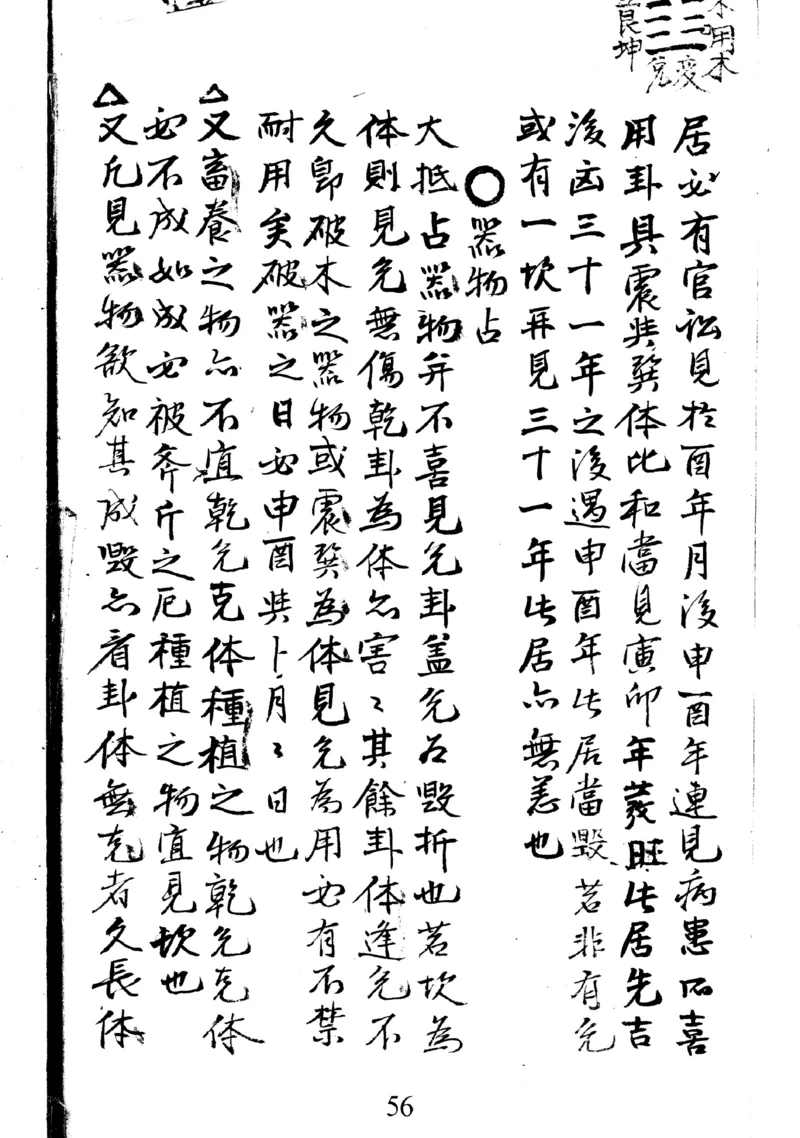 木用木
兌変
艮坤
居必有官訟見於酉年月後申酉年連見病患所喜
用卦具震共巽体比和當見寅卯年発旺此居先吉
後凶三十一年之後遇申酉年此居當毀若非有兌
或有一坎再見三十一年此居亦無恙也
○器物占
大抵占器物弁不喜見兌卦盖兌為毀折也若坎為
体則見兌無傷乾卦為体亦害〻其餘卦体逢兌不
久卽破木之器物或震巽為体見兌為用必有不禁
耐用矣破器之日必申酉共卜月〻日也
△又畜養之物亦不宜乾兌克体種植之物乾兌克体
必不成如成必被斧斤之厄種植之物宜見坎也
△又凡見器物欲知其成毀亦看卦体無克者久長体
56